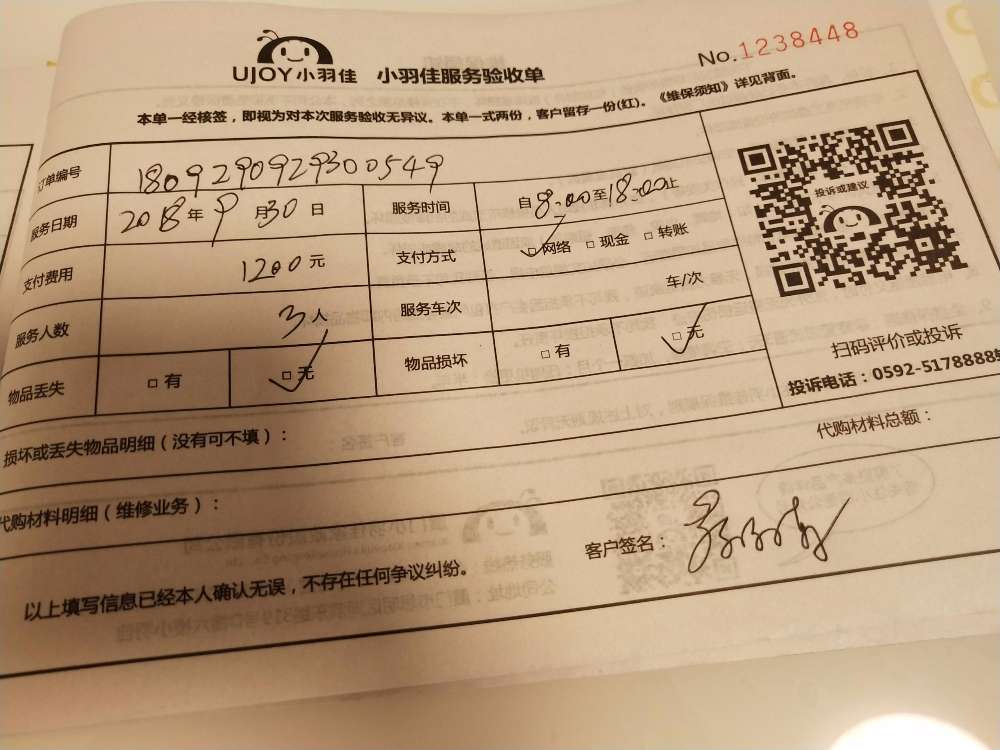 UJOY小羽佳 小羽佳服务验收单 No.1238448
本单一经核签，即视为对本次服务验收无异议。本单一式两份，客户留存一份(红)。《维保须知》详见背面。
订单编号 1809290929300549
服务日期 2018年9月30日 服务时间 自8:00至18:00止
支付费用 1200元 支付方式 □网络 □现金 □转账
服务人数 3人 服务车次 车/次
物品丢失 □有 □无 物品损坏 □有 □无
投诉或建议
扫码评价或投诉
投诉电话：0592-5178888
损坏或丢失物品明细（没有可不填）：
代购材料总额：
代购材料明细（维修业务）：
客户签名：
以上填写信息已经本人确认无误，不存在任何争议纠纷。